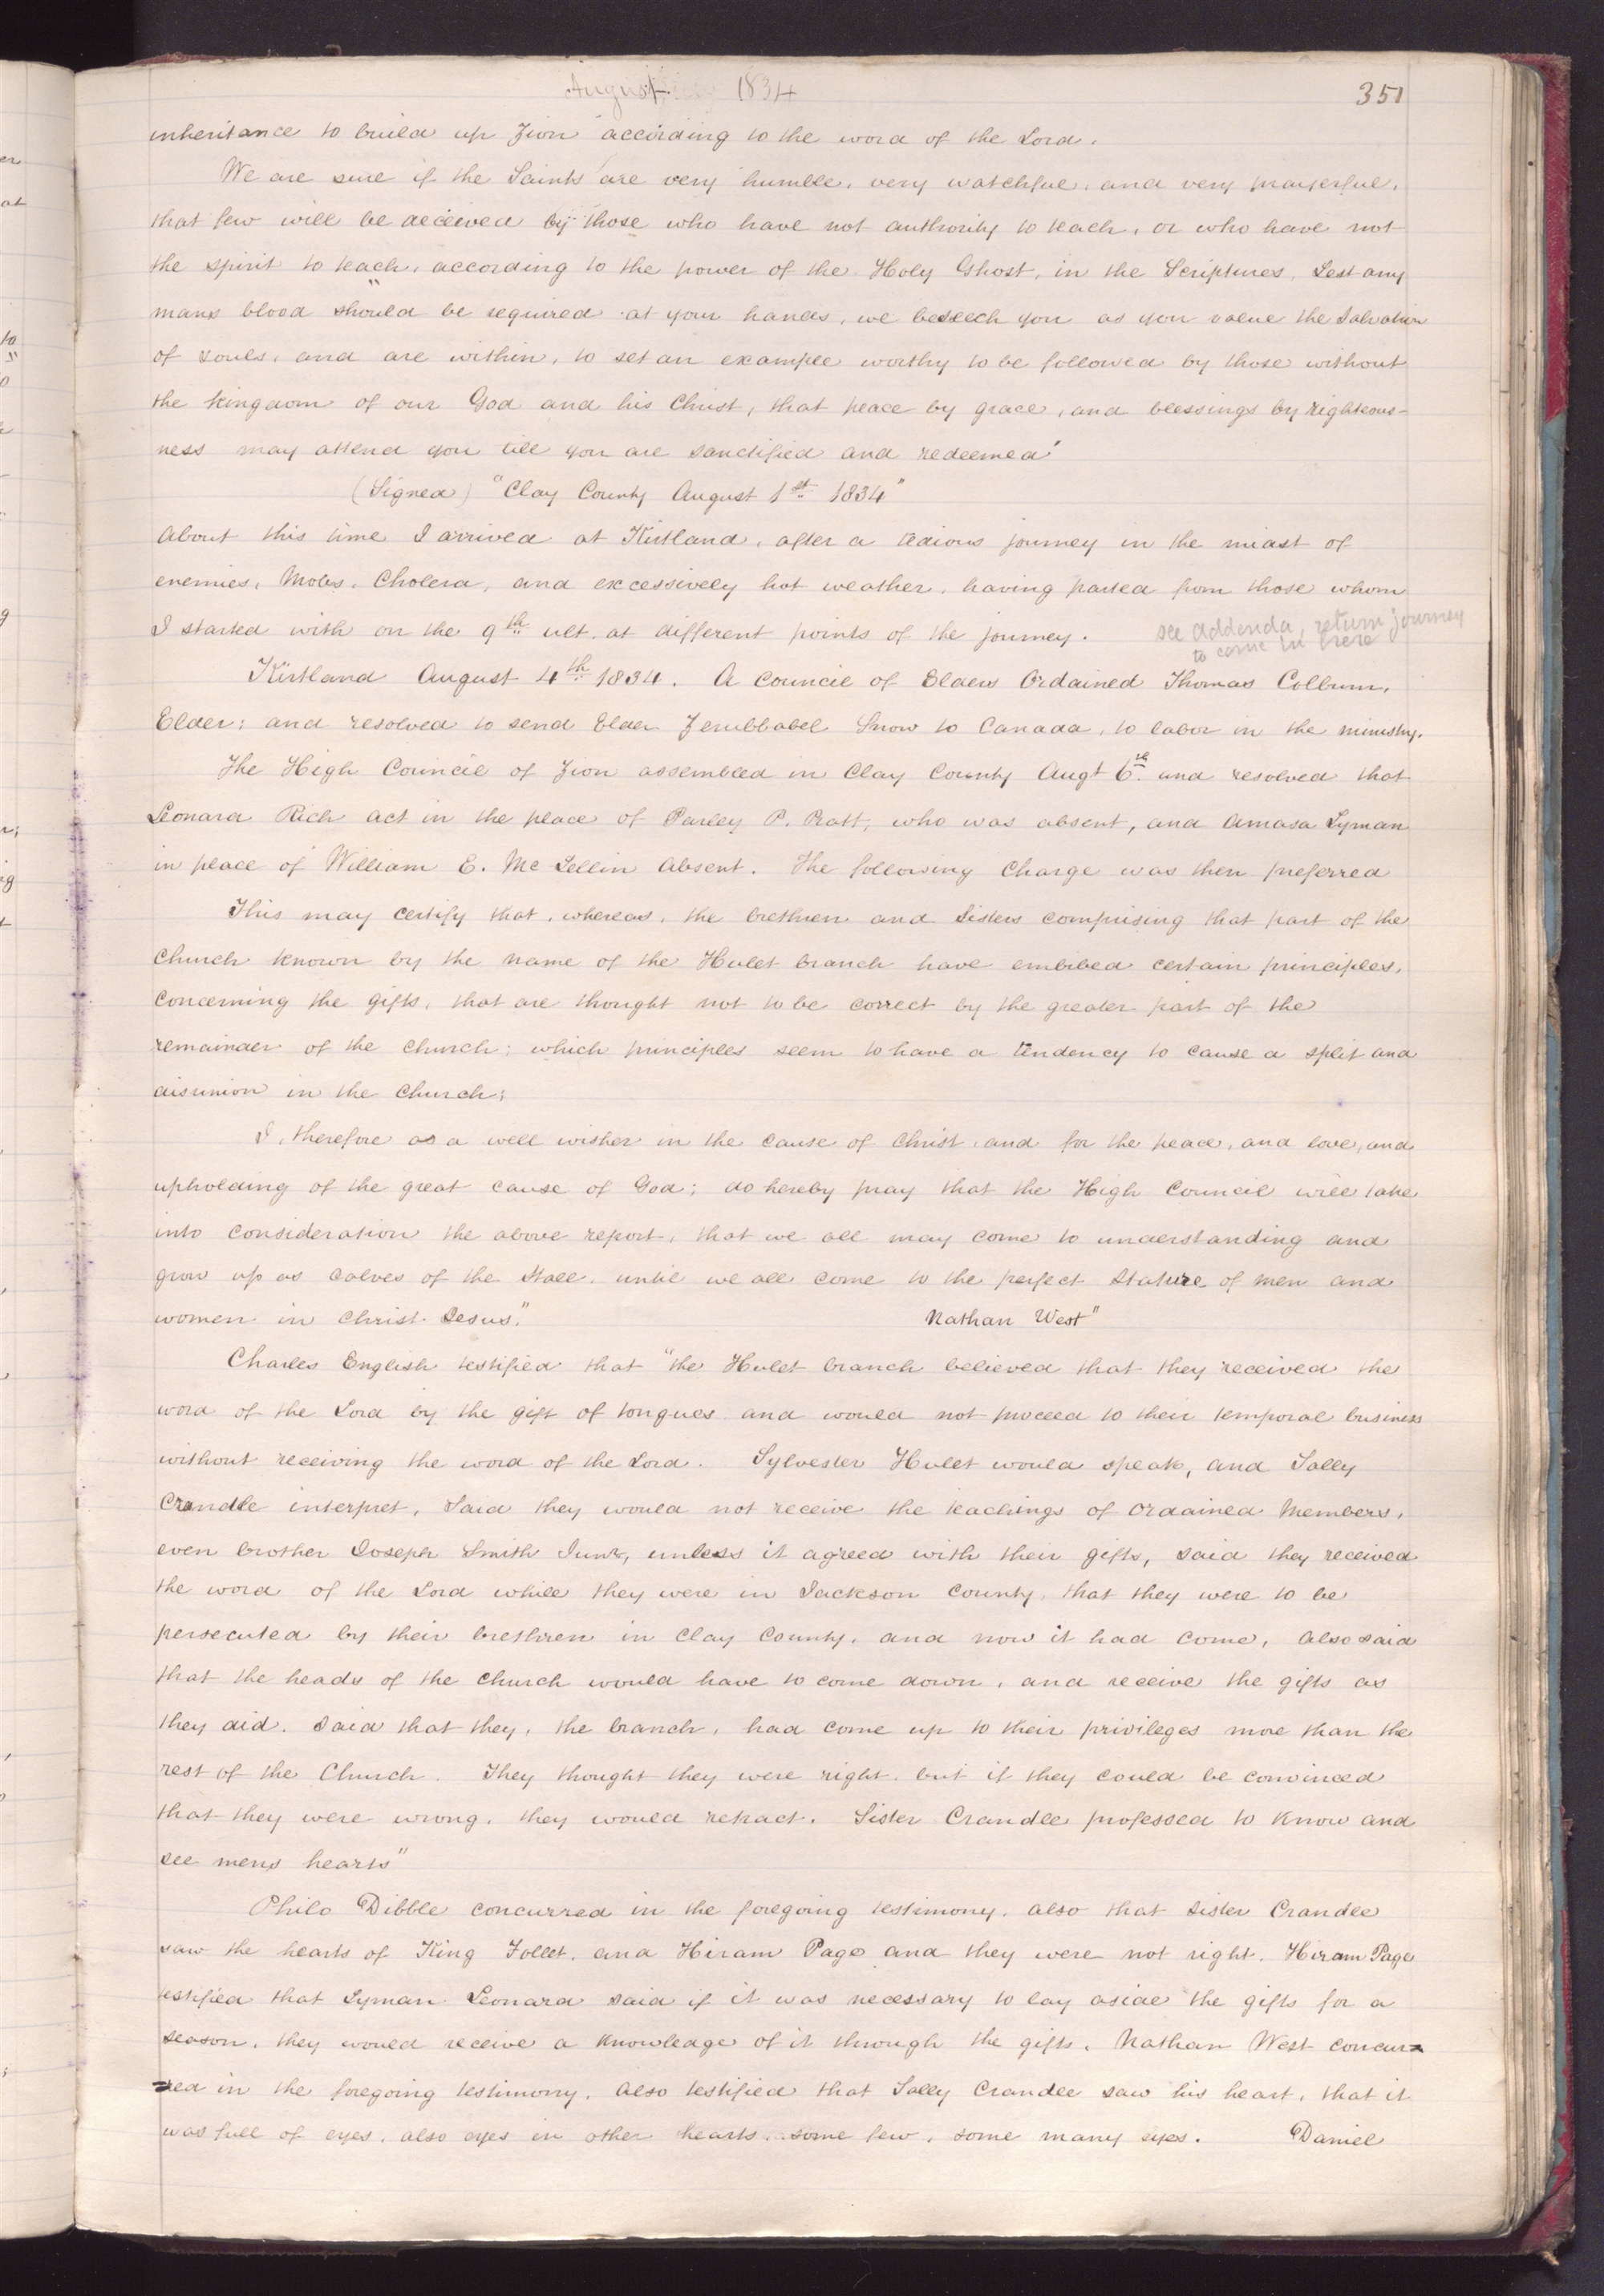 August 1834
351
inheritance to build up Zion according to the word of the Lord.
We are sure if the Saints are very humble, very watchful, and very prayerful,
that few will be deceived by those who have not authority to teach, or who have not
the spirit to teach, according to the power of the Holy Ghost, in the Scriptures, Lest any
mans blood should be required at your hands, we beseech you as you value the Salvation
of souls, and are within, to set an example worthy to be followed by those without
the kingdom of our God and his Christ, that peace by grace, and blessings by righteous-
ness may attend you till you are sanctified and redeemed"
(Signed) "Clay County August 1st 1834"
About this time I arrived at Kirtland, after a tedious journey in the midst of
enemies, Mobs, Cholera, and excessively hot weather, having parted from those whom
I started with on the 9th ult. at different points of the journey.
see addenda, return journey
to come in here
Kirtland August 4th 1834. A council of Elders Ordained Thomas Colburn,
Elder; and resolved to send Elder Zerubbabel Snow to Canada, to labor in the ministry.
The High Council of Zion assembled in Clay County Augt 6th and resolved that
Leonard Rich act in the place of Parley P. Pratt, who was absent, and Amasa Lyman
in place of William E. Mc Lellin Absent. The following Charge was then preferred
This may certify that, whereas, the brethren and Sisters comprising that part of the
church known by the name of the Hulet branch have embibed certain principles,
concerning the gifts, that are thought not to be correct by the greater part of the
remainder of the church; which principles seem to have a tendency to cause a split and
disunion in the church;
I, therefore as a well wisher in the cause of Christ, and for the peace, and love, and
upholding of the great cause of God; do hereby pray that the High Council will take
into consideration the above report, that we all may come to understanding and
grow up as calves of the Stall, until we all come to the perfect Stature of men and
women in Christ Jesus."
Nathan West"
Charles English testified that "the Hulet branch believed that they received the
word of the Lord by the gift of tongues and would not proceed to their temporal business
without receiving the word of the Lord. Sylvester Hulet would speak, and Sally
Crandle interpret, Said they would not receive the teachings of ordained Members,
even brother Joseph Smith Junr, unless it agreed with their gifts, said they received
the word of the Lord while they were in Jackson County, that they were to be
persecuted by their brethren in Clay County, and now it had come, Also said
that the heads of the church would have to come down, and receive the gifts as
they did. Said that they, the branch, had come up to their privileges more than the
rest of the Church. They thought they were right, but if they could be convinced
that they were wrong, they would retract. Sister Crandle professed to know and
see mens hearts"
Philo Dibble concurred in the foregoing testimony, also that sister Crandle
saw the hearts of King Follet, and Hiram Page and they were not right. Hiram Page
estified that Lyman Leonard said if it was necessary to lay aside the gifts for a
season, they would receive a knowledge of it through the gifts, Nathan West concur=
=red in the foregoing testimony, Also testified that Sally Crandle saw his heart, that it
was full of eyes, also eyes in other hearts, some few, some many eyes. Daniel